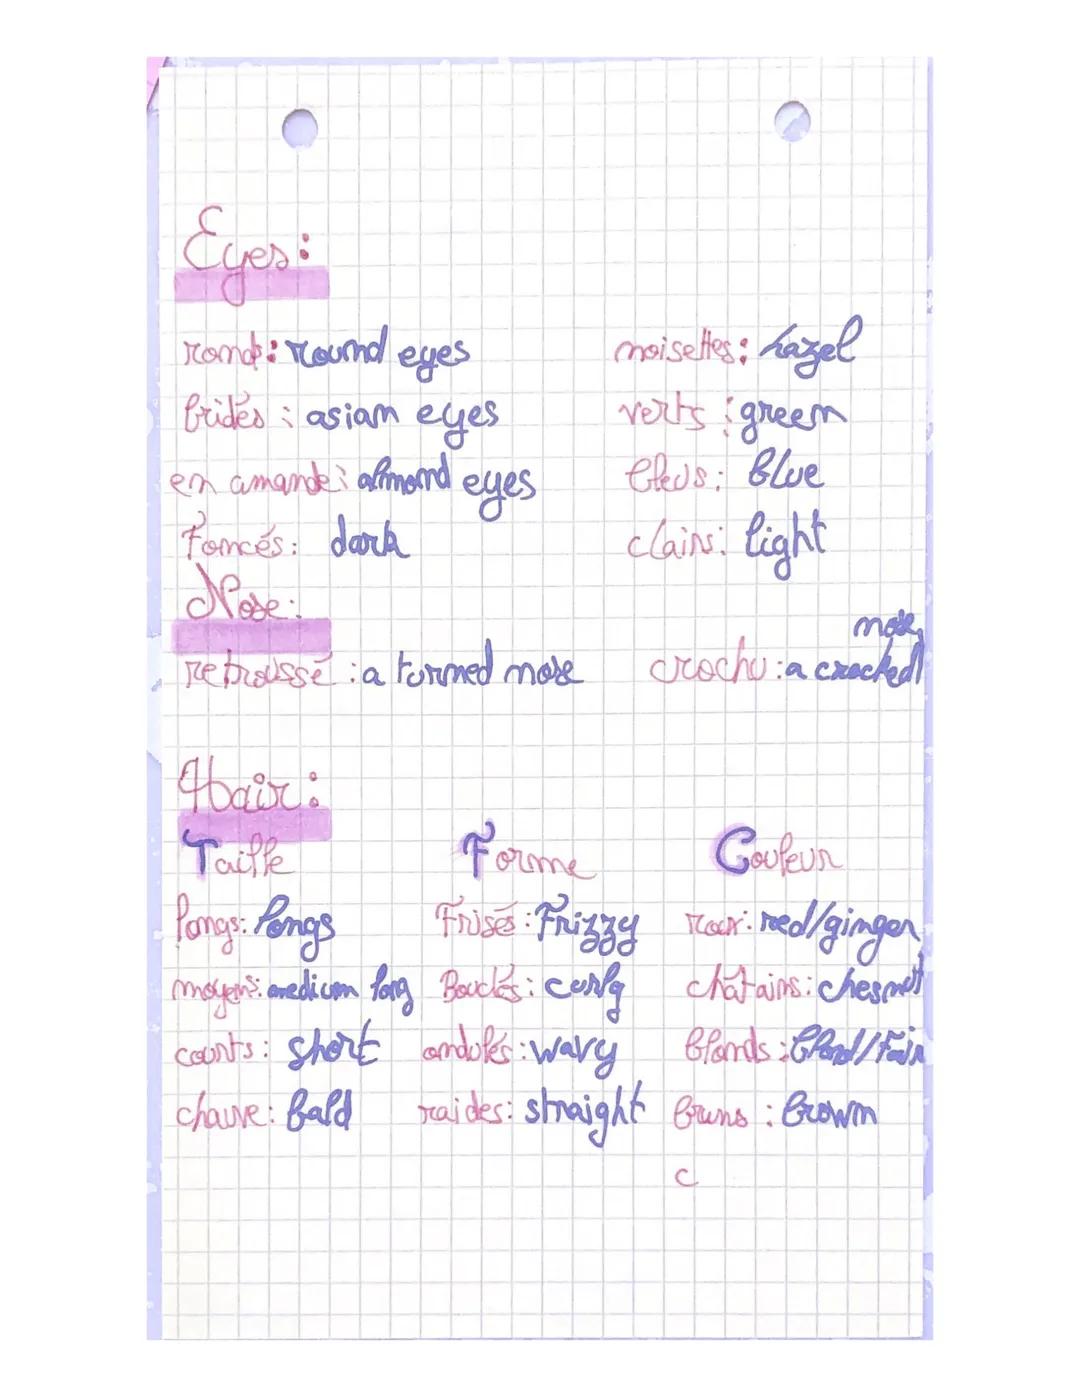 Eyes:
ronds: round eyes noisettes: hazel
bridés: asian eyes verts: green
en amande: almond eyes bleus: blue
Foncés: dark clairs: light
Nose:
retroussé: a turned nose crochu: a crocked nose
Hair:
Taille Forme Couleur
longs: longs Frisés: Frizzy roux: red/ginger
moyens: medium long Bouclés: curly châtains: chesnut
courts: short ondulés: wavy blonds: blond/Fair
chauve: bald raides: straight bruns: brown
c